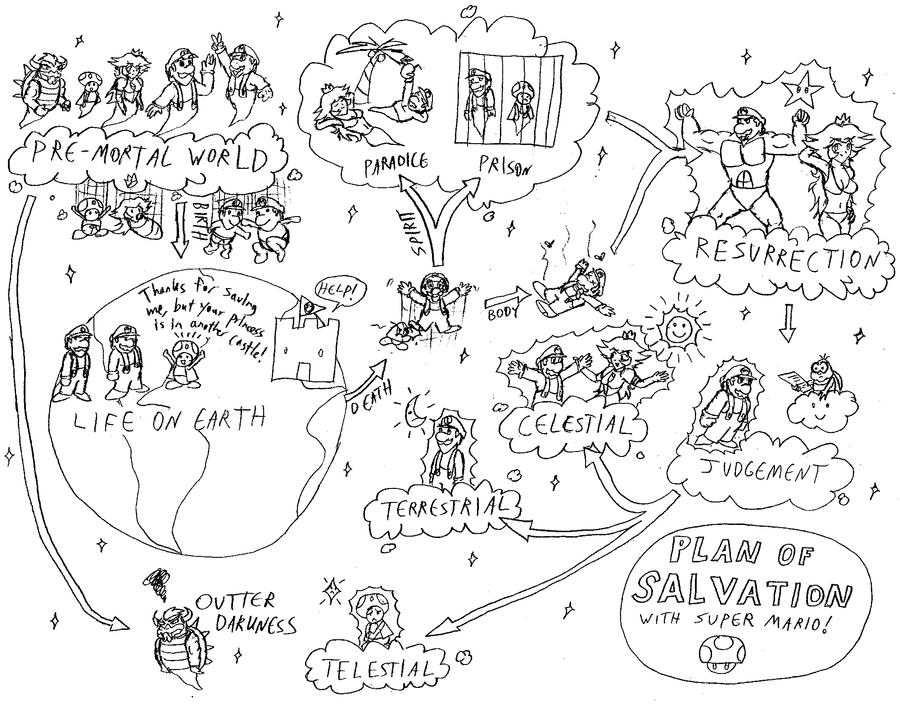 PRE-MORTAL WORLD
BIRTH
PARADICE
PRISON
SPIRIT
BODY
RESURRECTION
Thanks for saving
me, but your princess
is in another castle!
HELP!
LIFE ON EARTH
DEATH
CELESTIAL
TERRESTRIAL
JUDGEMENT
OUTTER
DARKNESS
TELESTIAL
PLAN OF
SALVATION
WITH SUPER MARIO!